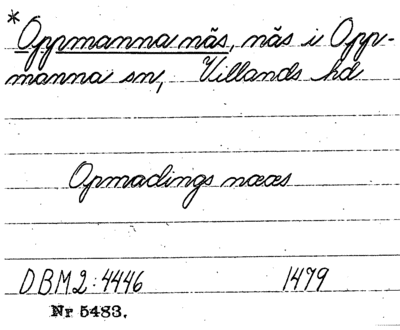 *Oppmanna näs, näs i Opp-
manna sn, Villands hd
Opmadings næs
DBM2:4446 1479
Nr 5483.